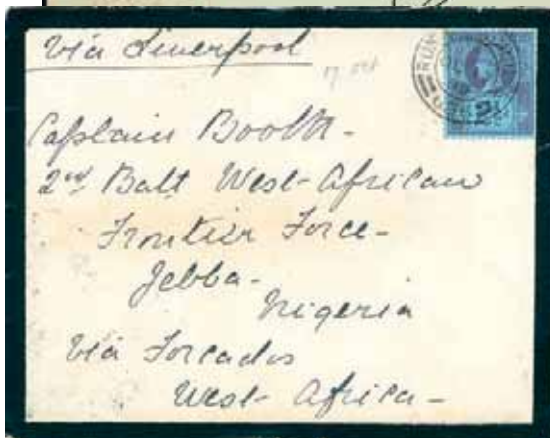 Via Liverpool
17 Oct
Captain Booth-
2nd Batt West African
Frontier Force-
Jebba-
Nigeria
Via Forcados
West Africa-
2½